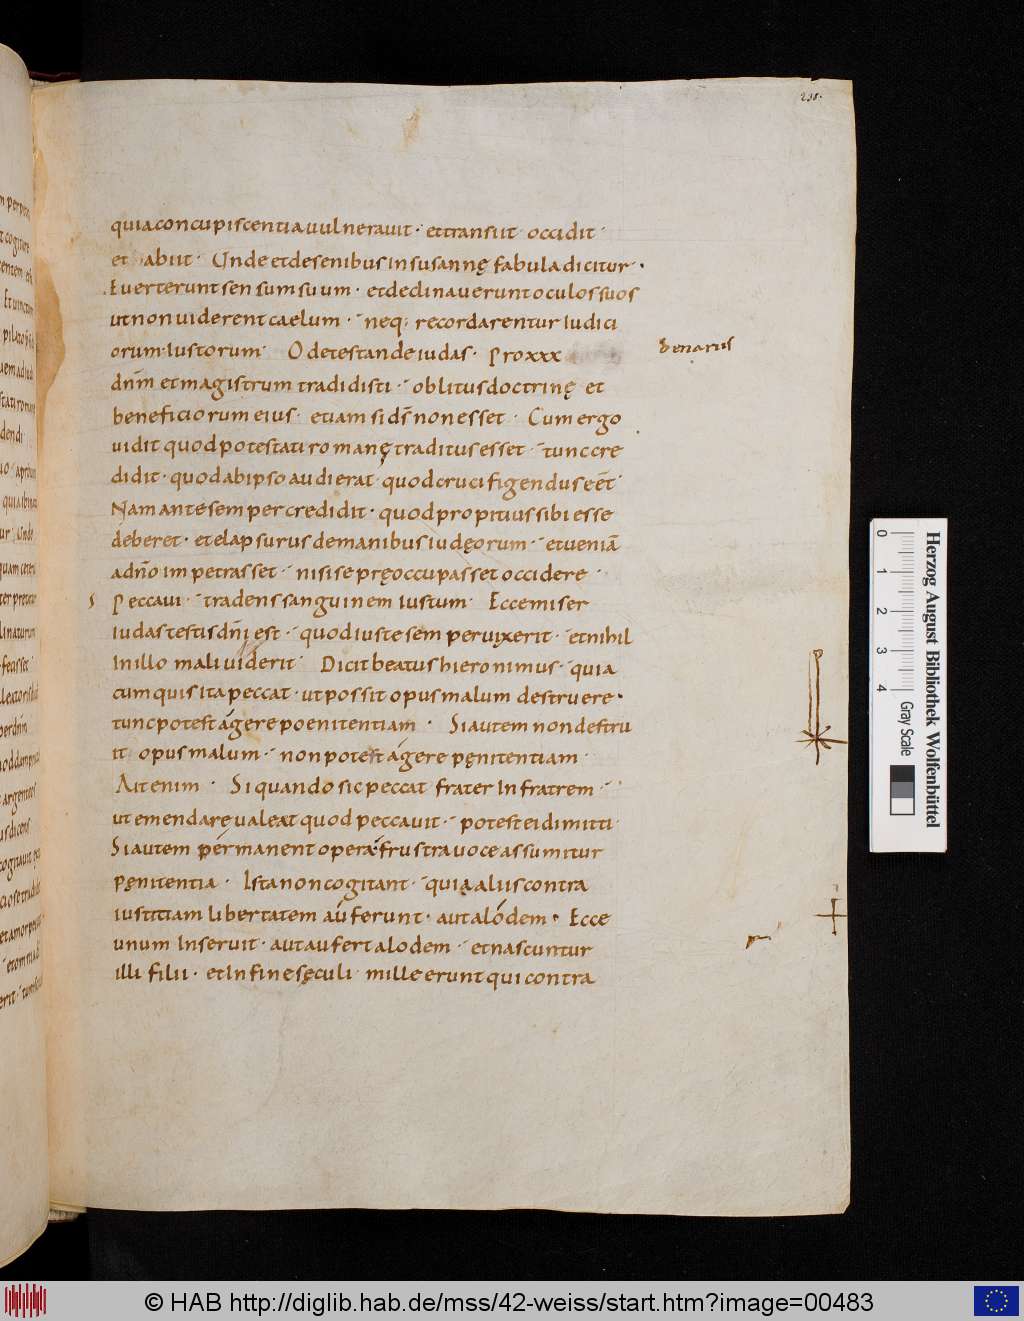 238.
quia concupiscentia uulnerauit · et transiit occidit ·
et abiit · Unde et de senibus in susannę fabula dicitur ·
Euerterunt sensum suum · et declinauerunt oculos suos
ut non uiderent caelum · neq; recordarentur iudici
orum iustorum · O detestande iudas · Pro xxx
denarius
dn̄m et magistrum tradidisti · oblitus doctrinę et
beneficiorum eius · etiam si ds̄ non esset · Cum ergo
uidit quod potestati romanę traditus esset · tunc cre
didit · quod ab ipso audierat · quod crucifigendus eēt
Nam ante semper credidit · quod propitius sibi esse
deberet · et elapsurus de manibus iudęorum · et ueniā
a dn̄o impetrasset · nisi se pręoccupasset occidere ·
s Peccaui · tradens sanguinem iustum · Ecce miser
iudas testis dn̄i est · quod iuste semper uixerit · et nihil
In illo mali uiderit · Dicit beatus hieronimus · quia
cum quis ita peccat · ut possit opus malum destruere ·
tunc potest ágere poenitentiam · Si autem non destru
it opus malum · non potest ágere pęnitentiam ·
Ait enim · Si quando sic peccat frater In fratrem ·
ut emendare ualeat quod peccauit · potest ei dimitti
Si autem pérmanent opera · frustra uoce assumitur
pęnitentia · Ista non cogitant · qui a aliis contra
iustitiam libertatem auferunt · aut alódem · Ecce
unum Inseruit · aut aufert alodem · et nascuntur
illi filii · et In fine sęculi mille erunt qui contra
Herzog August Bibliothek Wolfenbüttel
0 1 2 3 4 Gray Scale
© HAB http://diglib.hab.de/mss/42-weiss/start.htm?image=00483